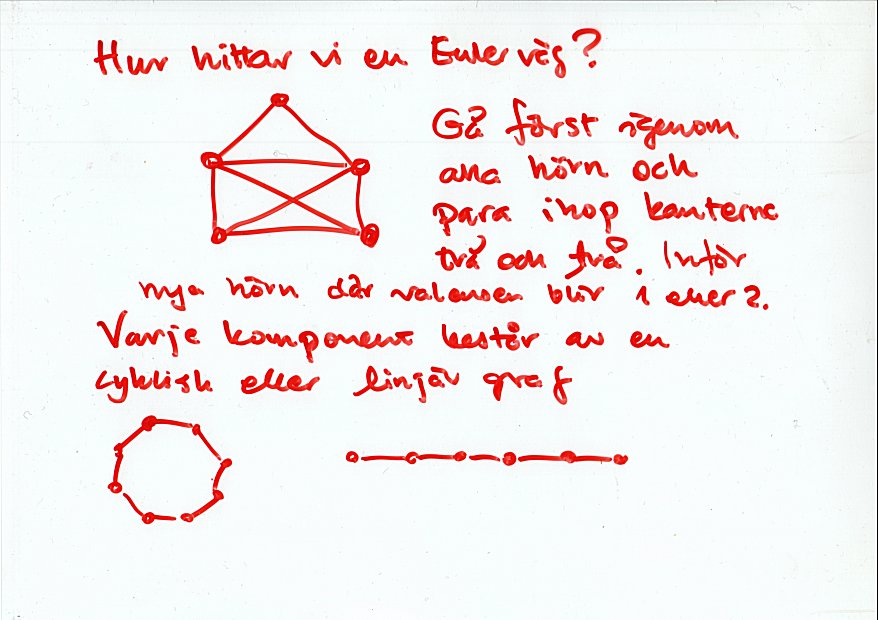 Hur hittar vi en Euler väg?
Gå först igenom
alla hörn och
para ihop kanterna
två och två. Inför
nya hörn där valensen blir 1 eller 2.
Varje komponent består av en
cyklisk eller linjär graf